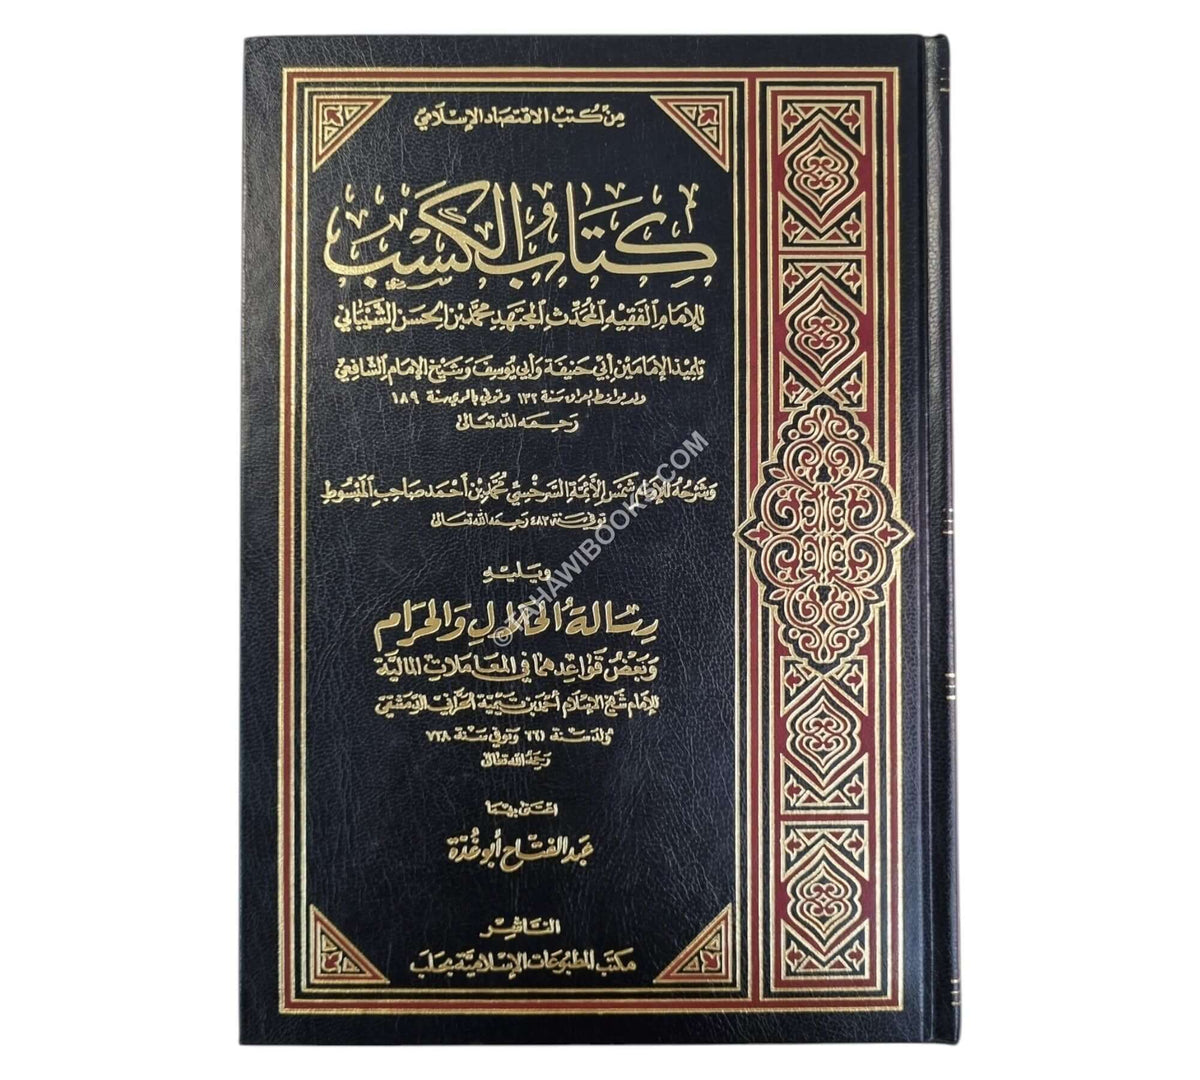 من كتب الاقتصاد الإسلامي
كتاب الكسب
للإمام الفقيه المحدث المجتهد محمد بن الحسن الشيباني
تلميذ الإمامين أبي حنيفة وأبي يوسف وشيخ الإمام الشافعي
ولد بواسط العراق سنة ١٣٢ وتوفي بالري سنة ١٨٩
رحمه الله تعالى
وشرحه للإمام شمس الأئمة السرخسي محمد بن أحمد صاحب المبسوط
توفي سنة ٤٨٣ رحمه الله تعالى
ويليه
رسالة الحلال والحرام
وبعض قواعدهما في المعاملات المالية
للإمام شيخ الإسلام أحمد بن تيمية الحراني الدمشقي
ولد سنة ٦٦١ وتوفي سنة ٧٢٨
رحمه الله تعالى
اعتنى بهما
عبد الفتاح أبو غدة
الناشر
مكتب المطبوعات الإسلامية بحلب
© TAHAWIBOOKS.COM